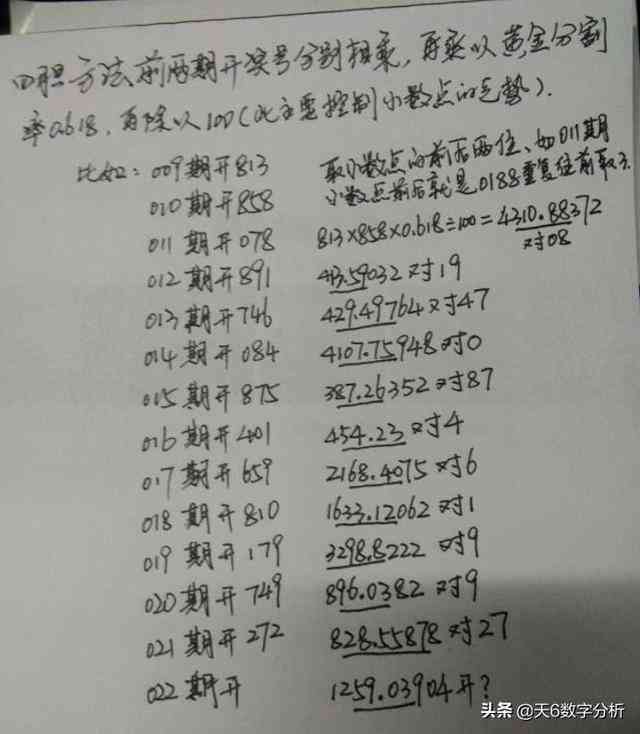 四胆方法前两期开奖号分别相乘,再乘以黄金分割
率0.618,再除以100(此主要控制小数点的走势).
比如:009期开813 取小数点的前后两位、如011期
010期开858 小数点前后就是0188重复往前取3.
011期开078 813×858×0.618÷100=4310.88372
对08
012期开891 413.59032对19
013期开746 429.49764对47
014期开084 4107.75948对0
015期开875 387.26352对87
016期开401 454.23对4
017期开659 2168.4075对6
018期开810 1633.12062对1
019期开179 3298.8222对9
020期开749 896.0382对9
021期开272 828.55878对27
022期开 1259.03904开?
头条@天6数字分析